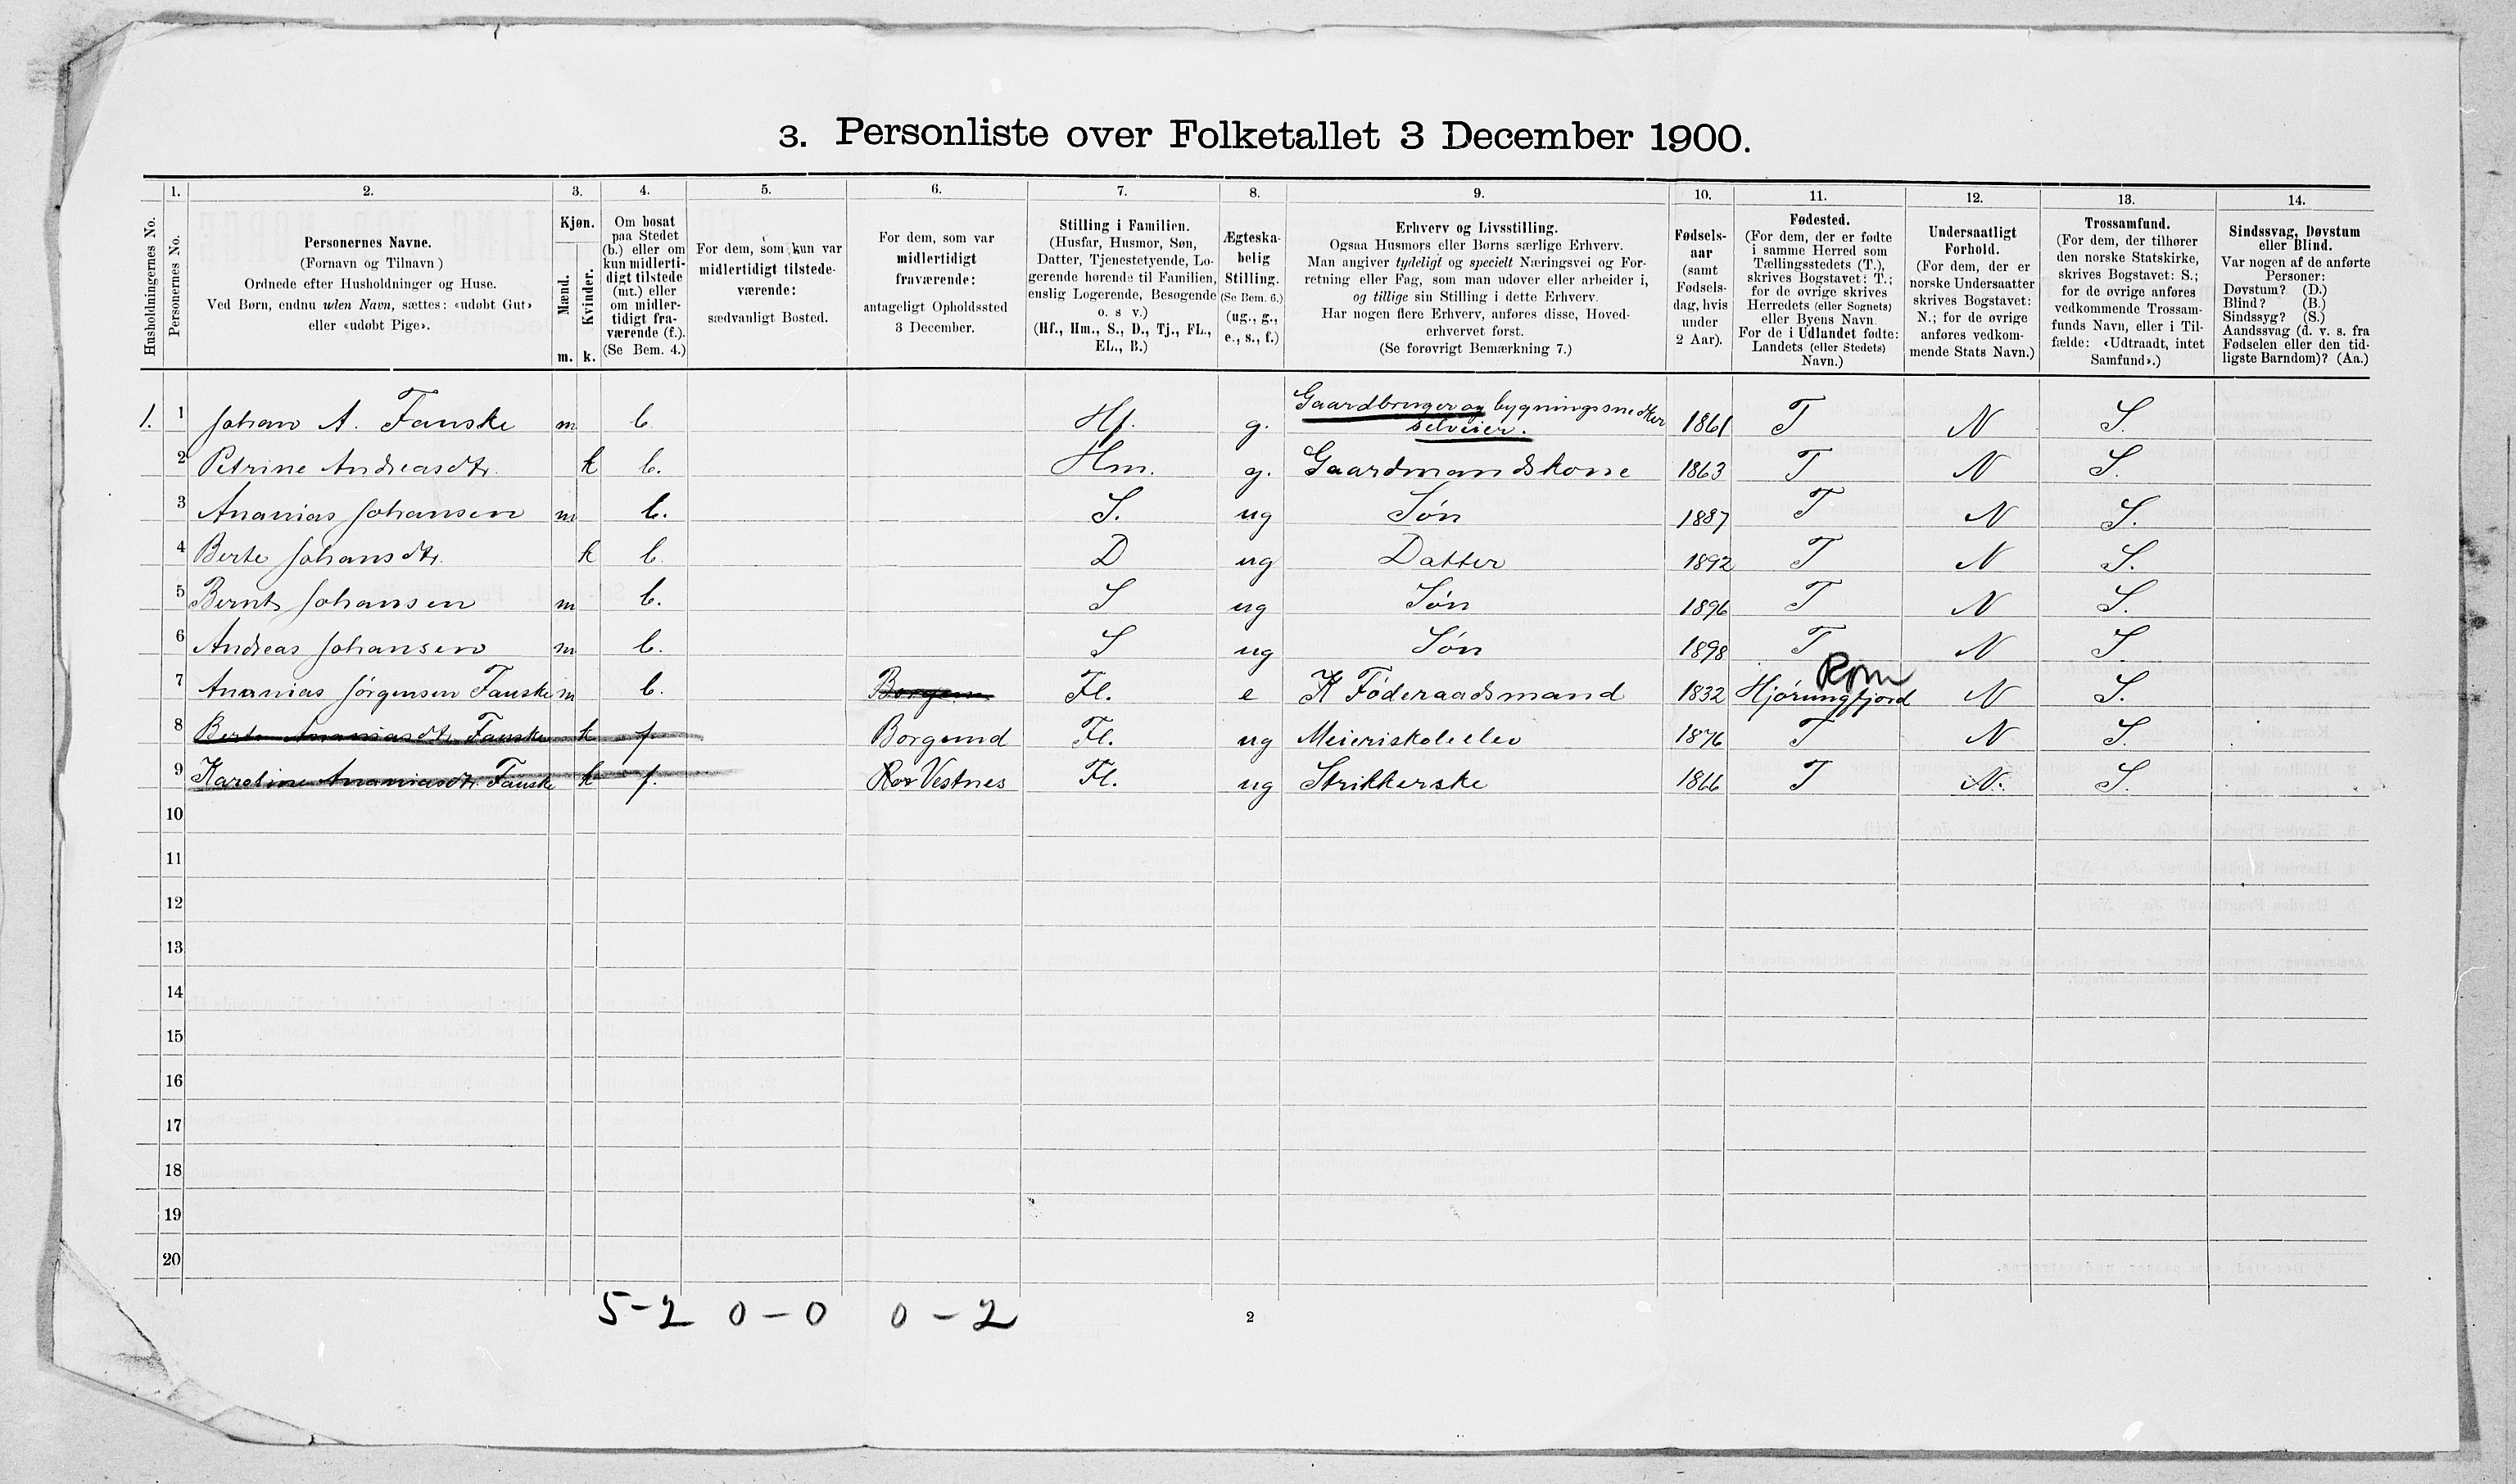 3. Personliste over Folketallet 3 December 1900.
1. 2. 3. 4. 5. 6. 7. 8. 9. 10. 11. 12. 13. 14.
Husholdningernes No.
Personernes No.
Personernes Navne.
(Fornavn og Tilnavn)
Ordnede efter Husholdninger og Huse.
Ved Børn, endnu uden Navn, sættes: «udøbt Gut»
eller «udøbt Pige».
Kjøn.
Mænd.
Kvinder.
m. k.
Om bosat
paa Stedet
(b.) eller om
kun midlerti-
digt tilstede
(mt.) eller
om midler-
tidigt fra-
værende (f.).
(Se Bem. 4.)
For dem, som kun var
midlertidigt tilstede-
værende:
sædvanligt Bosted.
For dem, som var
midlertidigt
fraværende:
antageligt Opholdssted
3 December.
Stilling i Familien.
(Husfar, Husmor, Søn,
Datter, Tjenestetyende, Lo-
gerende hørende til Familien,
enslig Logerende, Besøgende
o. s v.)
(Hf., Hm., S., D., Tj., FL.,
EL., B.)
Ægteska-
belig
Stilling.
(Se Bem. 6.)
(ug., g.,
e., s., f.)
Erhverv og Livsstilling.
Ogsaa Husmors eller Børns særlige Erhverv.
Man angiver tydeligt og specielt Næringsvei og For-
retning eller Fag, som man udover eller arbeider i,
og tillige sin Stilling i dette Erhverv.
Har nogen flere Erhverv, anføres disse, Hoved-
erhvervet først.
(Se forøvrigt Bemærkning 7.)
Fødsels-
aar
(samt
Fødsels-
dag, hvis
under
2 Aar).
Fødested.
(For dem, der er fødte
i samme Herred som
Tællingsstedets (T.),
skrives Bogstavet: T.;
for de øvrige skrives
Herredets (eller Sognets)
eller Byens Navn
For de i Udlandet fødte:
Landets (eller Stedets)
Navn.)
Undersaatligt
Forhold.
(For dem, der er
norske Undersaatter
skrives Bogstavet:
N.; for de øvrige
anføres vedkom-
mende Stats Navn.)
Trossamfund.
(For dem, der tilhører
den norske Statskirke,
skrives Bogstavet: S.;
for de øvrige anføres
vedkommende Trossam-
funds Navn, eller i Til-
fælde: «Udtraadt, intet
Samfund».)
Sindssvag, Døvstum
eller Blind.
Var nogen af de anførte
Personer:
Døvstum? (D.)
Blind? (B.)
Sindssyg? (S.)
Aandssvag (d. v. s. fra
Fødselen eller den tid-
ligste Barndom)? (Aa.)
1. 1 Johan A. Fauske m b. Hf. g. Gaardbruger og bygningssnedker selveier. 1861 T N S.
2 Petrine Andreasdtr. k b. Hm. g. Gaardmandskone 1863 T N S.
3 Ananias Johansen m b. S. ug Søn 1887 T N S.
4 Berte Johansdtr. k b. D ug Datter 1892 T N S.
5 Bernt Johansen m b. S ug Søn 1896 T N S.
6 Andreas Johansen m b. S ug Søn 1898 T N S.
Rom
7 Ananias Jørgensen Fauske m b. Borgen Fl. e K Føderaadsmand 1832 Hjørungfjord N S.
8 Berte Ananiasdtr. Fauske k f. Borgund Fl. ug Meieriskoleelev 1876 T N S.
9 Karoline Ananiasdtr. Fauske k f. Vestnes Fl. ug Strikkerske 1866 T N. S.
10
11
12
13
14
15
16
17
18
19
20
5-2 0-0 0-2 2